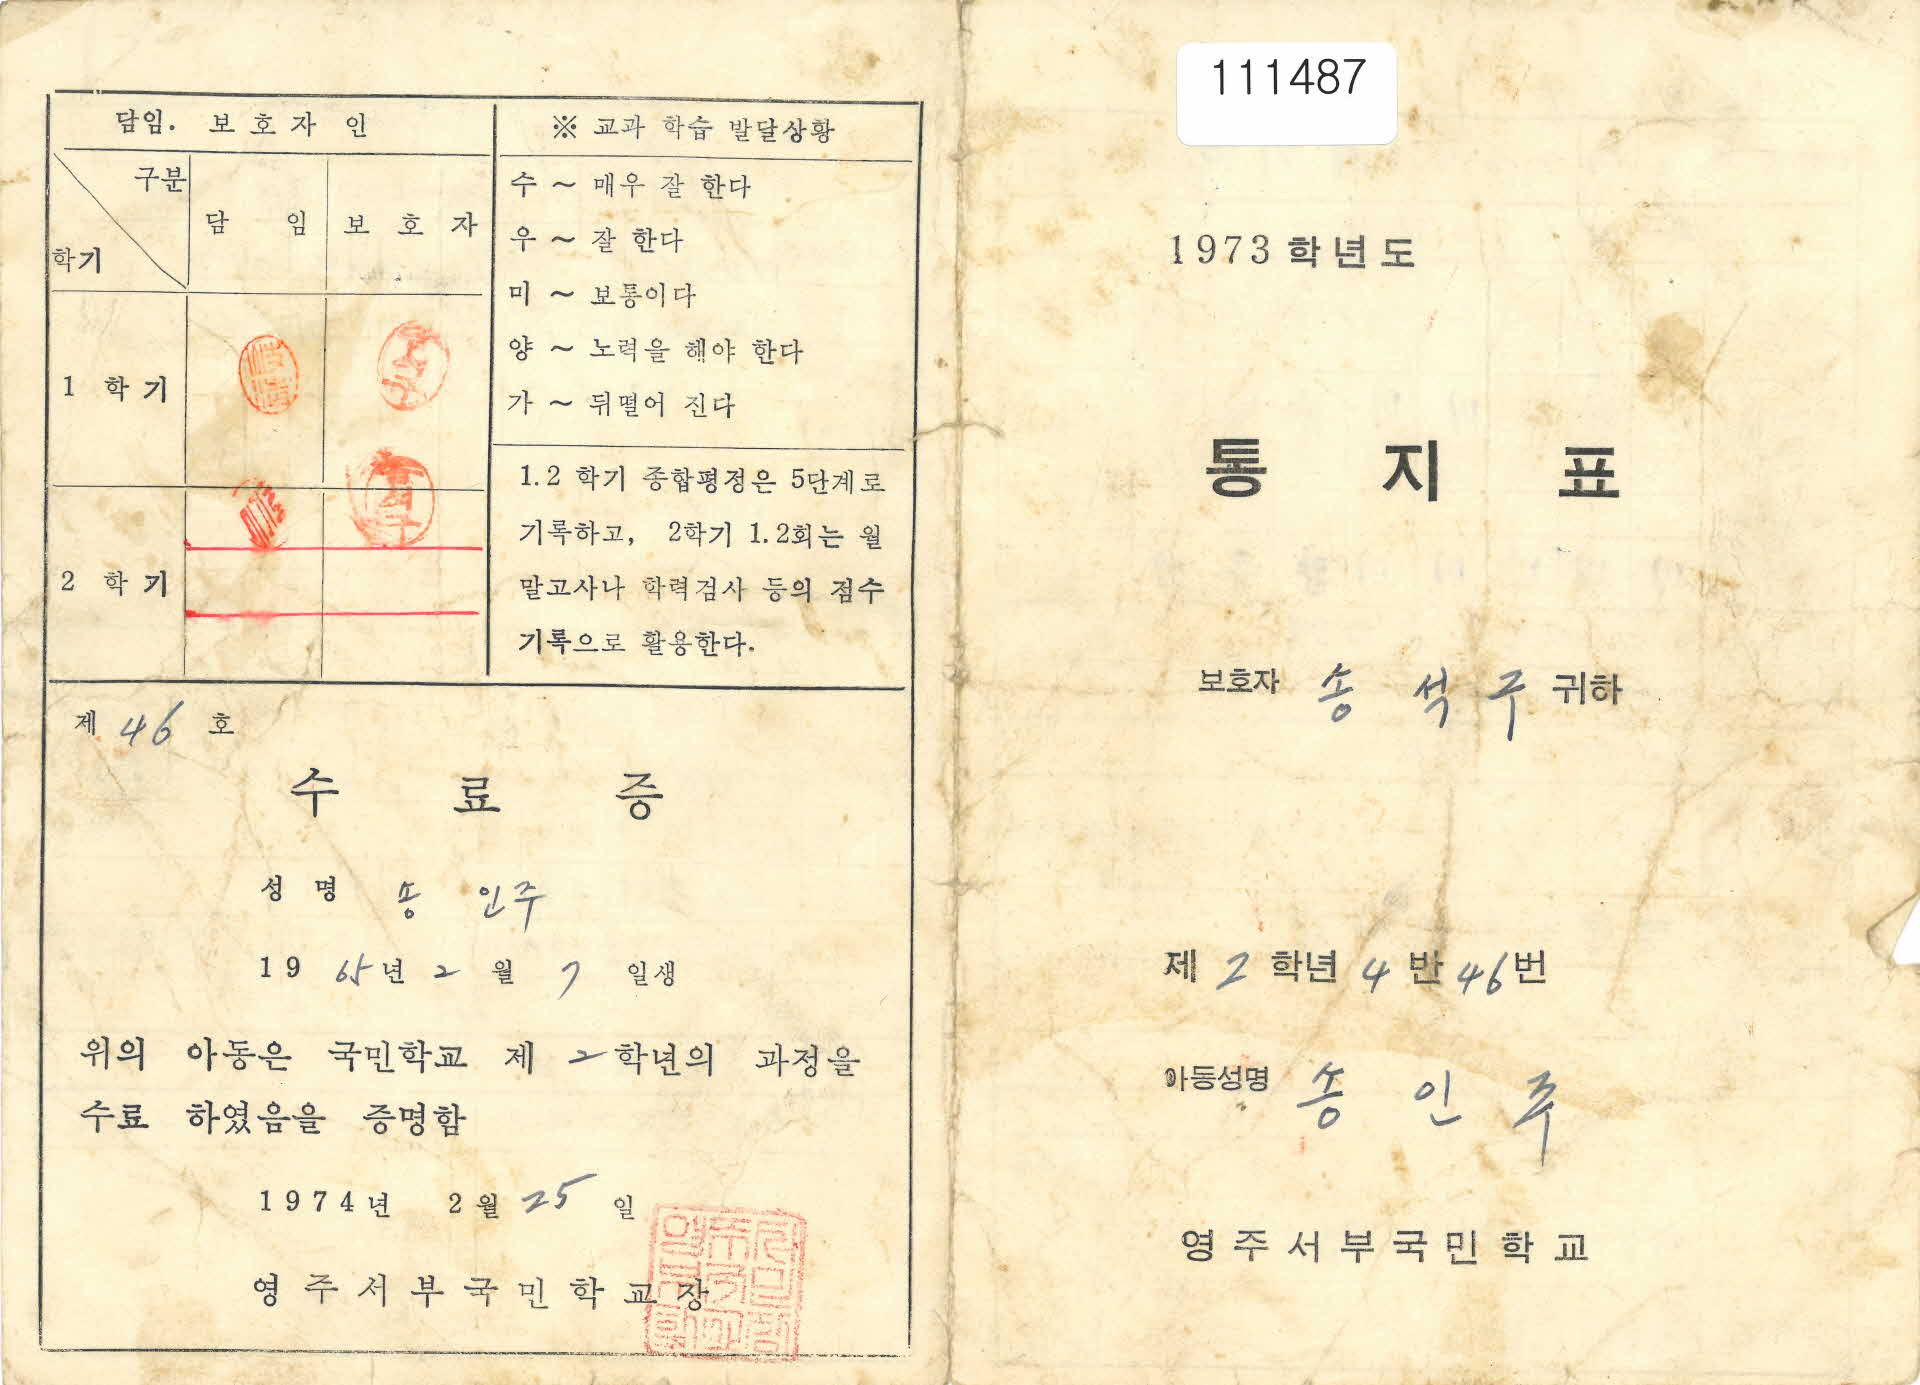 담임. 보호자 인
구분
학기
담 임 보 호 자
1 학 기
2 학 기
※ 교과 학습 발달상황
수 ~ 매우 잘 한다
우 ~ 잘 한다
미 ~ 보통이다
양 ~ 노력을 해야 한다
가 ~ 뒤떨어 진다
1.2 학기 종합평정은 5단계로
기록하고, 2학기 1.2회는 월
말고사나 학력검사 등의 점수
기록으로 활용한다.
제 46 호
수 료 증
성 명 송 인주
19 65년 2 월 7 일생
위의 아동은 국민학교 제 2 학년의 과정을
수료 하였음을 증명함
1974년 2월 25 일
영 주 서 부 국 민 학 교 장
111487
1973 학년도
통 지 표
보호자 송 석 구 귀하
제 2 학년 4 반 46 번
아동성명 송 인 주
영 주 서 부 국 민 학 교